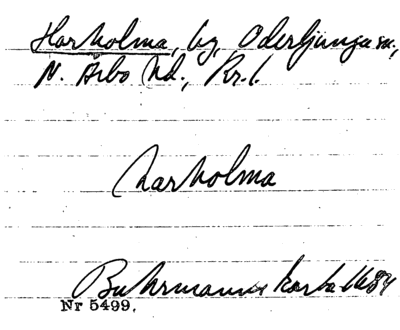 Harholma, by, Oderljunga sn.,
N. Åsbo hd., Kr. l.
harholma
Buhrmanns karta 1684
Nr 5499.